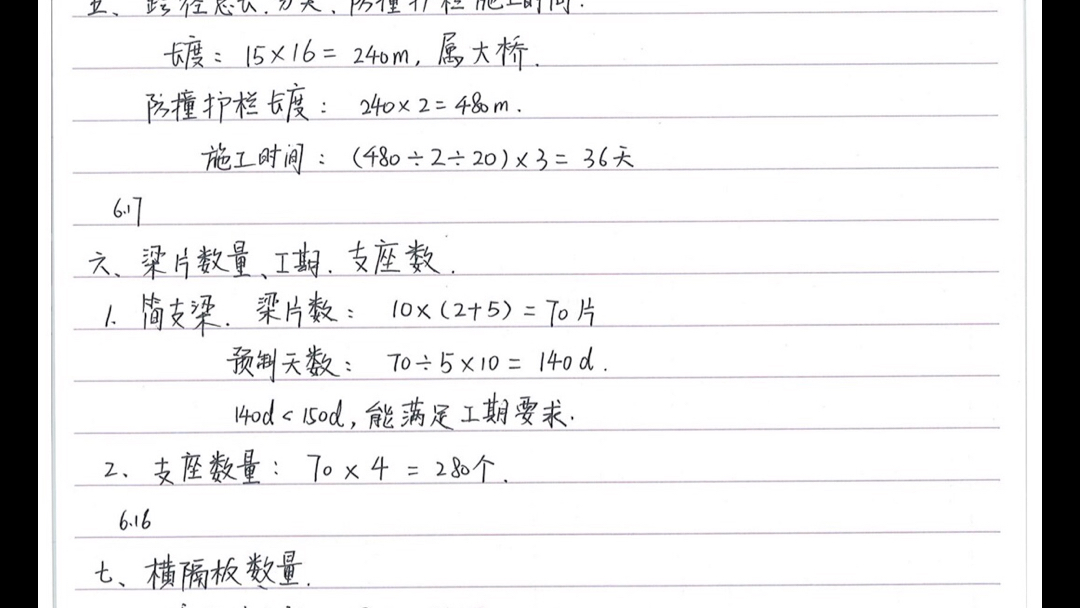 五、跨径总长、分类、防撞护栏施工时间.
长度：15×16=240m，属大桥.
防撞护栏长度：240×2=480m.
施工时间：(480÷2÷20)×3=36天
6.17
六、梁片数量、工期.支座数.
1.简支梁.梁片数：10×(2+5)=70片
预制天数：70÷5×10=140d.
140d<150d,能满足工期要求.
2、支座数量：70×4=280个.
6.16
七、横隔板数量.